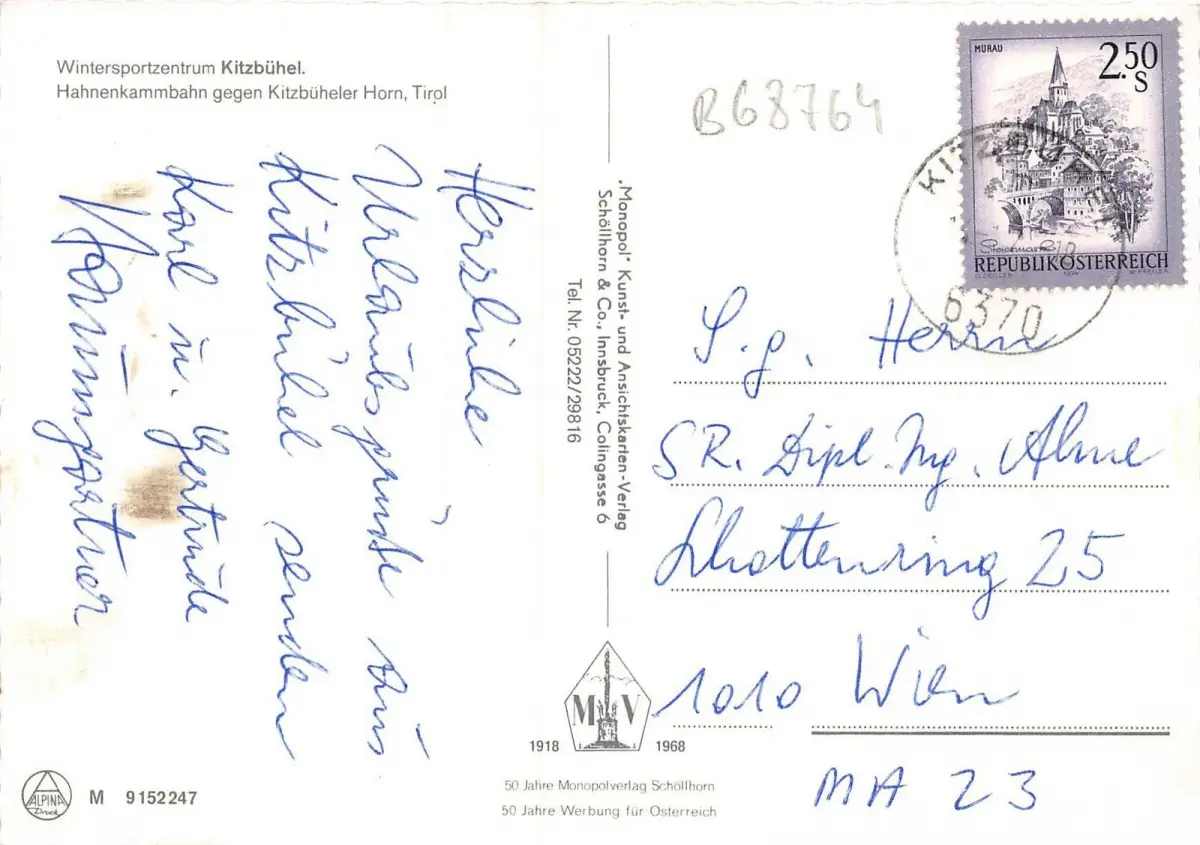 Wintersportzentrum Kitzbühel.
Hahnenkammbahn gegen Kitzbüheler Horn, Tirol
Herzliche
Urlaubsgrüße aus
Kitzbühel senden
Karl u. Gertrude
"Monopol" Kunst- und Ansichtskarten-Verlag
Schöllhorn & Co., Innsbruck, Colingasse 6
Tel. Nr. 05222/29816
B68764
MURAU
2.50
S
Steiermark
REPUBLIK ÖSTERREICH
KITZBÜHEL
6370
S.g. Herrn
SR. Dipl. Ing.
Schottenring 25
1010 Wien
MA 23
M V
1918 1968
50 Jahre Monopolverlag Schöllhorn
50 Jahre Werbung für Österreich
ALPINA
Druck
M 9152247